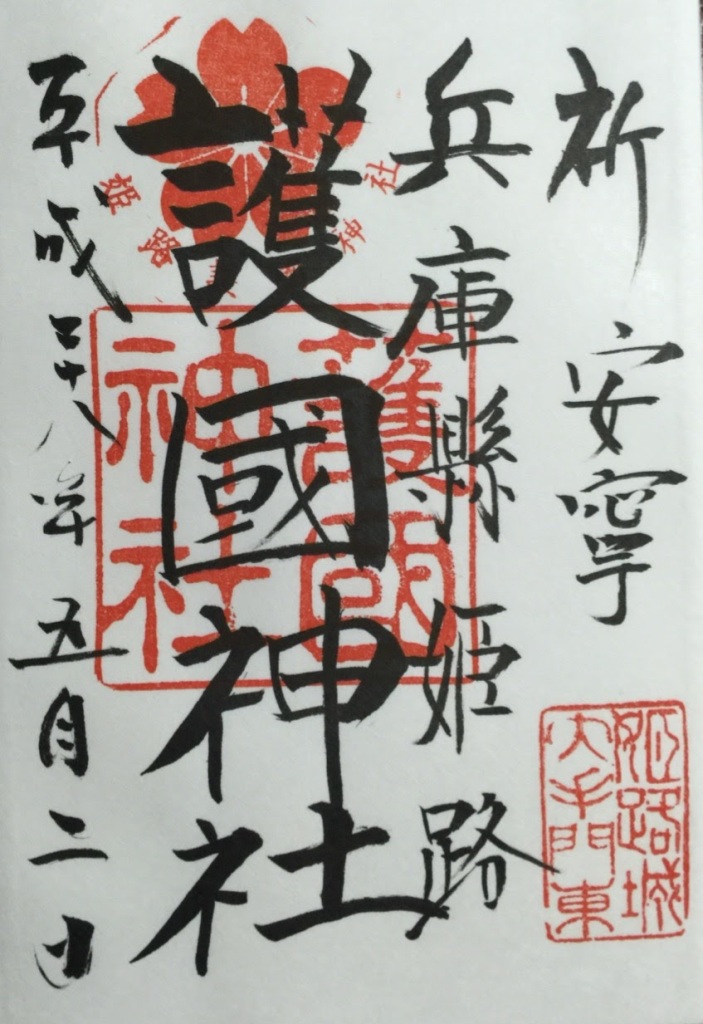 祈 安寧
姫路城
大手門東
兵庫縣姫路
護國神社
姫路 神社
護國
神社
平成二十八年五月二日